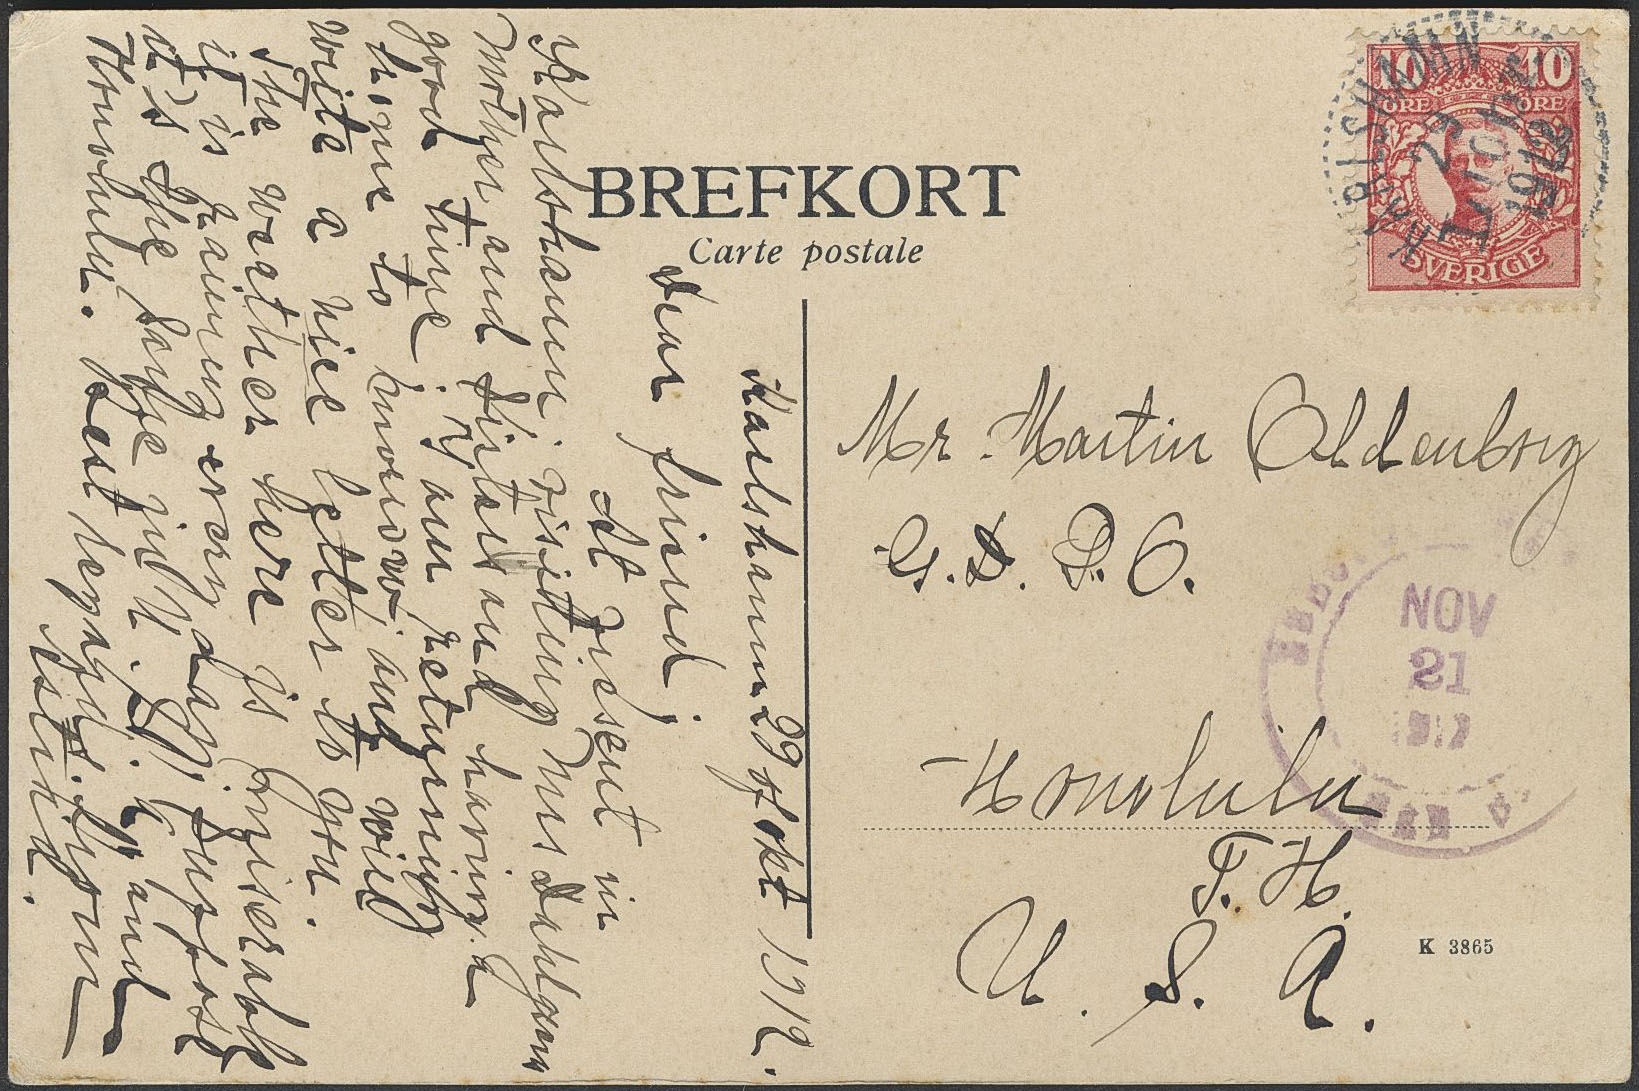 BREFKORT
Carte postale
10 10
ÖRE ÖRE
SVERIGE
KARLSHAMN
29 10
1912
Karlshamn 29 of okt 1912.
Dear friend;
At present in
Karlshamn visiting Mrs Dahlgren
mother and sister and having a
good time. I am returning
home to and will
write a nice letter to you.
The weather here is miserable
it is raining every day. I suppose
it's the same in and
Honolulu. Best regards from
Astrid.
Mr. Martin Oldenborg
G. D. P. O.
Honolulu
T. H.
U. S. A.
NOV
21
K 3865